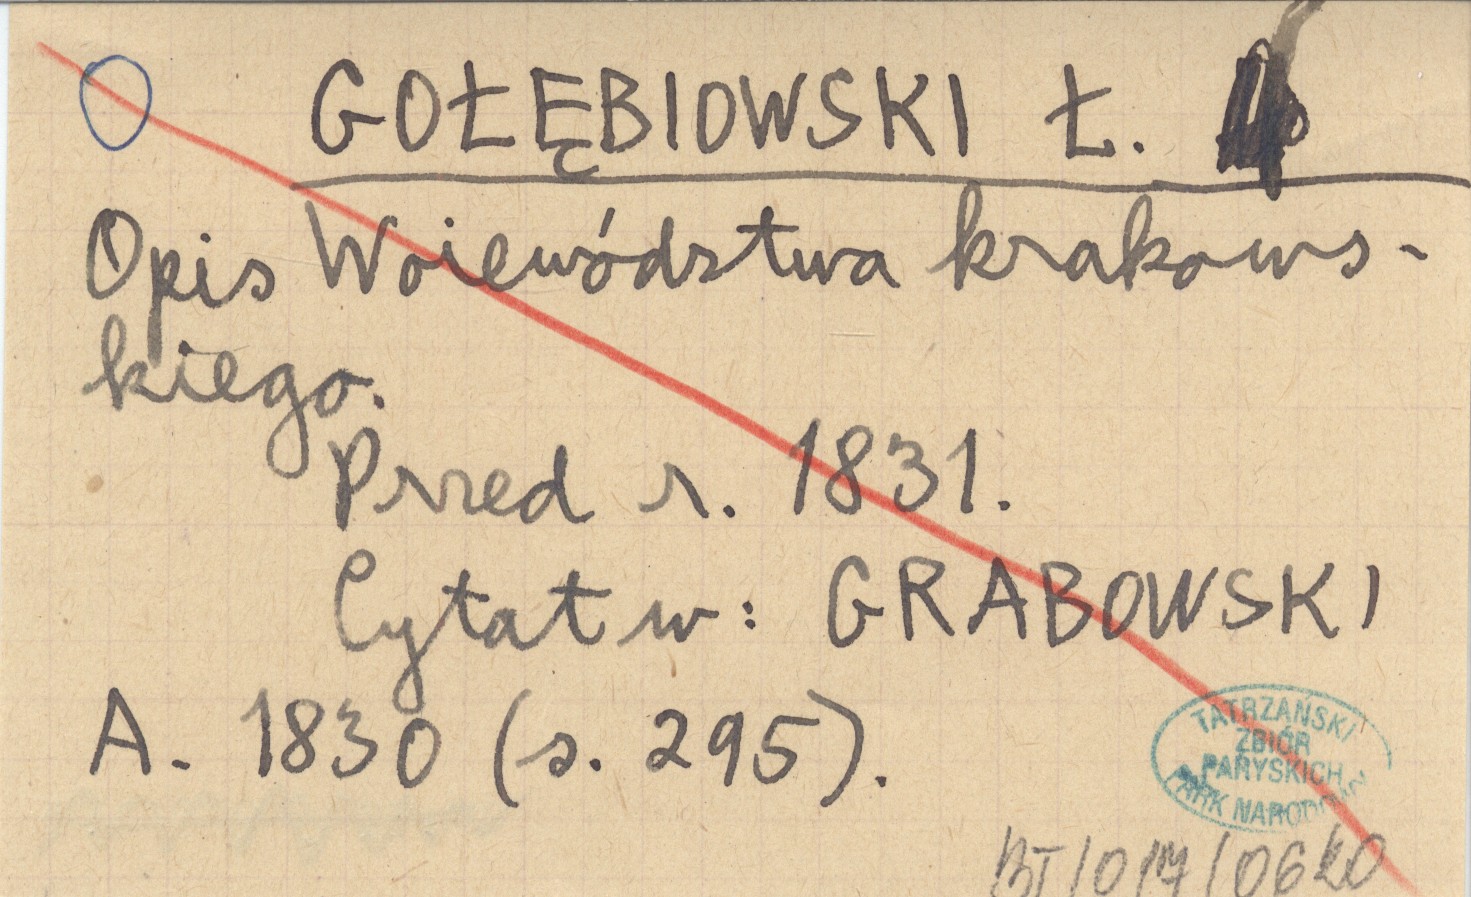 GOŁĘBIOWSKI Ł.
Opis Województwa krakows-
kiego.
Przed r. 1831.
Cytat w: GRABOWSKI
A. 1830 (s. 295).
TATRZAŃSKI
ZBIÓR
PARYSKICH
PARK NARODOWY